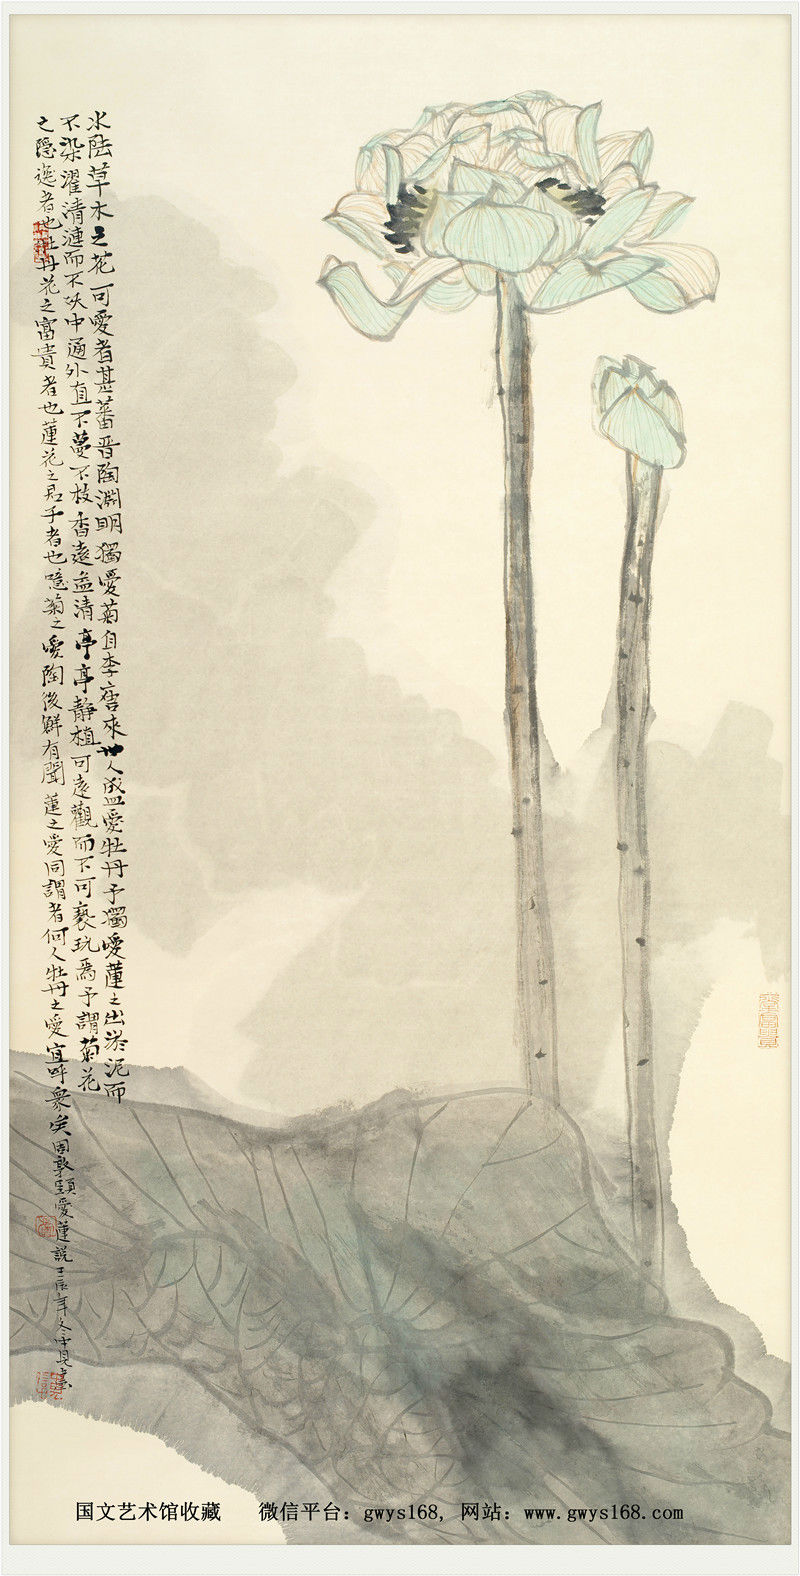 水陸草木之花可愛者甚蕃晋陶淵明獨愛菊自李唐來世人盛愛牡丹予獨愛蓮之出淤泥而
不染濯清漣而不妖中通外直不蔓不枝香遠益清亭亭静植可遠觀而不可褻玩焉予謂菊花
之隱逸者也牡丹花之富貴者也蓮花之君子者也噫菊之愛陶後鮮有聞蓮之愛同謂者何人牡丹之愛宜呼衆矣周敦頤愛蓮説壬辰年冬
国文艺术馆收藏 微信平台：gwys168, 网站：www.gwys168.com